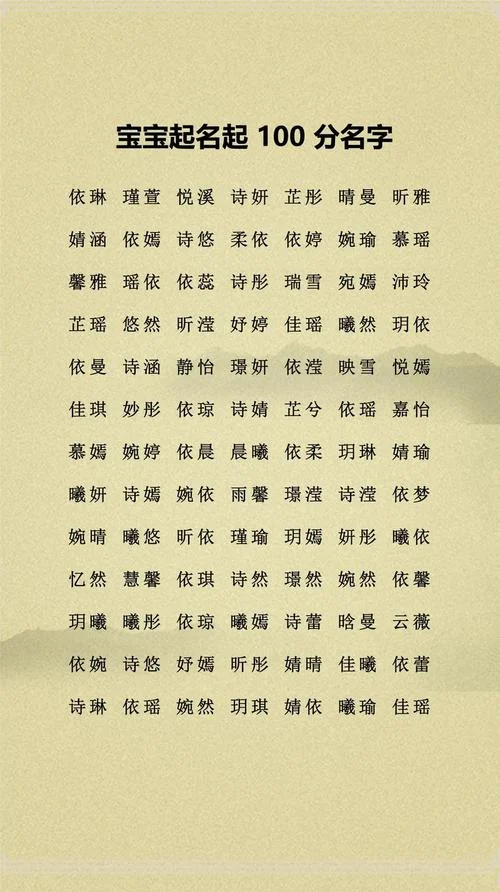 宝宝起名起 100 分名字
依琳 瑾萱 悦溪 诗妍 芷彤 晴曼 昕雅
婧涵 依嫣 诗悠 柔依 依婷 婉瑜 慕瑶
馨雅 瑶依 依蕊 诗彤 瑞雪 宛嫣 沛玲
芷瑶 悠然 昕滢 妤婷 佳瑶 曦然 玥依
依曼 诗涵 静怡 璟妍 依滢 映雪 悦嫣
佳琪 妙彤 依琼 诗婧 芷兮 依瑶 嘉怡
慕嫣 婉婷 依晨 晨曦 依柔 玥琳 婧瑜
曦妍 诗嫣 婉依 雨馨 璟滢 诗滢 依梦
婉晴 曦悠 昕依 瑾瑜 玥嫣 妍彤 曦依
忆然 慧馨 依琪 诗然 璟然 婉然 依馨
玥曦 曦彤 依琼 曦嫣 诗蕾 晗曼 云薇
依婉 诗悠 妤嫣 昕彤 婧晴 佳曦 依蕾
诗琳 依瑶 婉然 玥琪 婧依 曦瑜 佳瑶